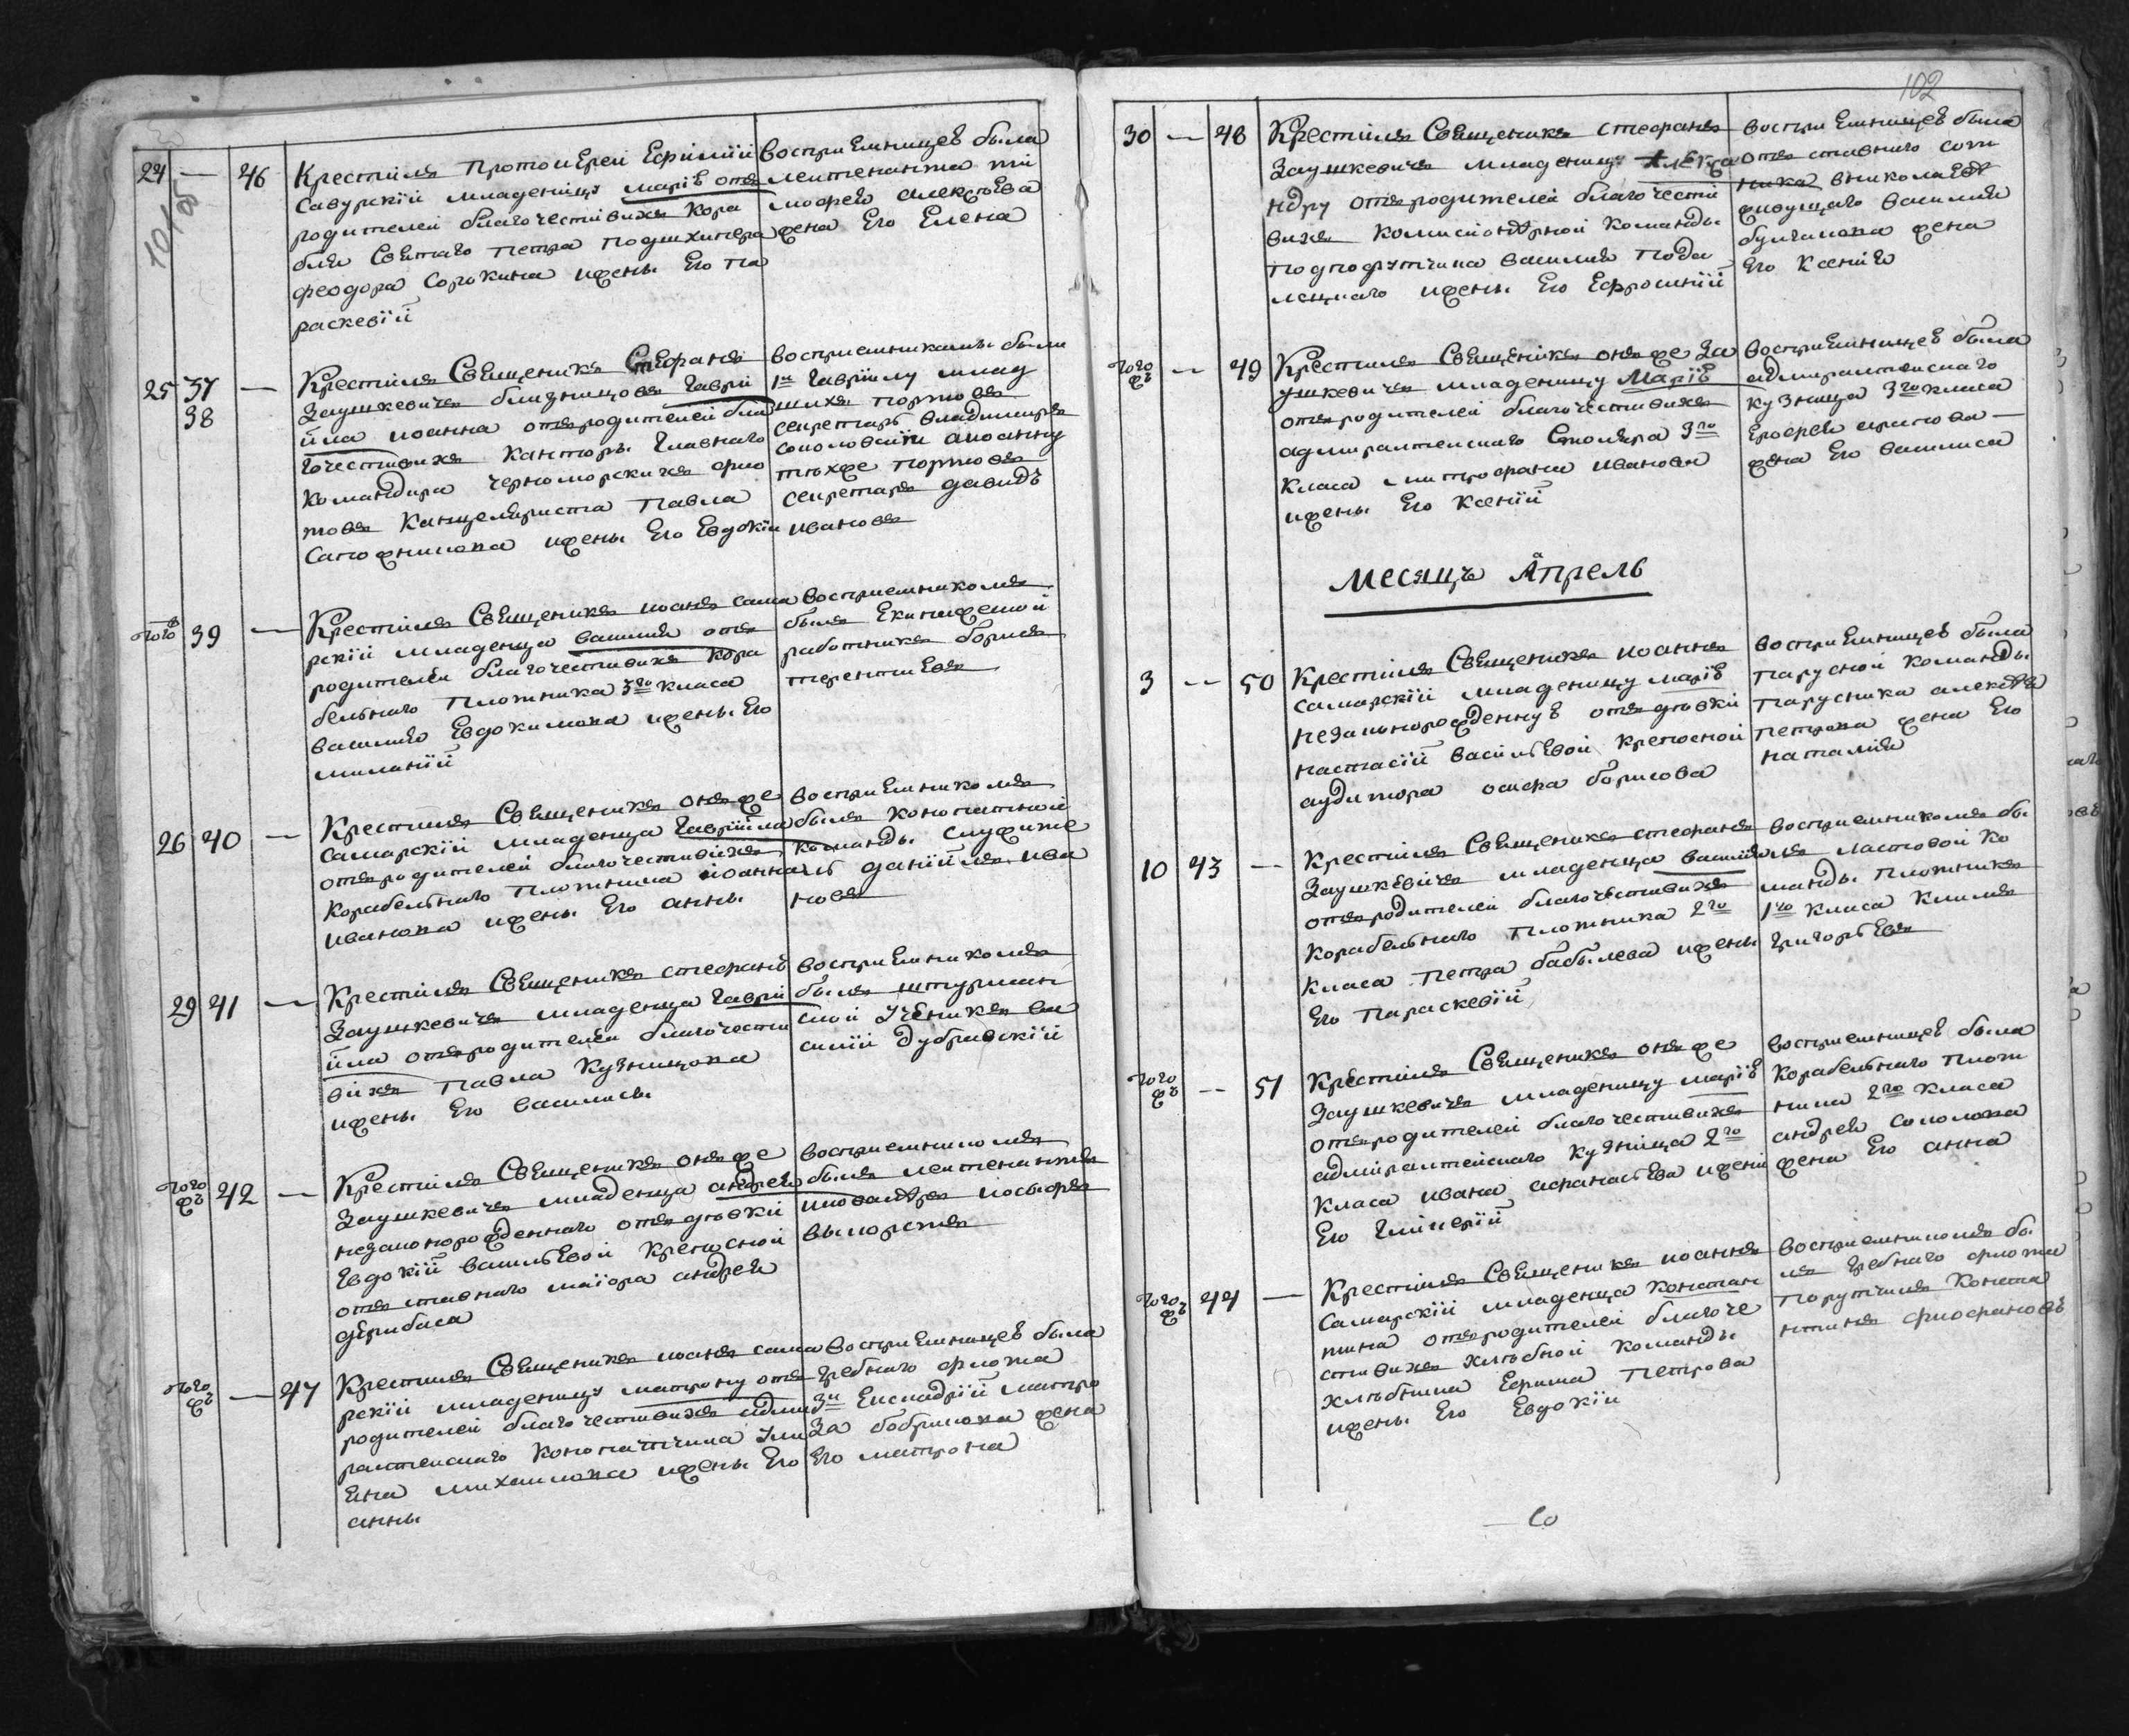 102
101 об
24 — 46 Крестилъ Протоиерей Ефимий
Савурский младеницу марію отъ
родителей благочестивихъ кора
бля Святаго Петра Подшхипера
феодора Сорокина ижены Его Па
раскевіи
воспрiемницею была
лейтенанта ти
мофея алексѣева
жена Его Елена
25 37 38 — Крестилъ Священикъ Стефанъ
Заушкевичъ близницовъ Гаврі
ила иоанна отъ родителей бла
гочестивихъ канторы Главнаго
командира черноморскихъ фло
товъ Канцеляриста Павла
Сапожникова ижены Его Евдокіи
воспрiемниками были
1й Гаврiилу млад
шихъ портовъ
секретарь владимиръ
соколовски аиоанну
техже портовъ
секретарь давидъ
ивановъ
тогожъ 39 — Крестилъ Священикъ иоанъ сама
рскій младенца василия отъ
родителей благочестивихъ кора
бельнаго плотника 3го класа
василия Евдокимова ижены Его
миланіи
воспрiемникомъ
былъ Екипажеской
работникъ борисъ
терентиевъ
26 40 — Крестилъ Священикъ онъже
самарскій младенца Гавріила
отъ родителей благочестивіхъ
корабельнаго плотника иоанна
иванова ижены Его анны
воспрiемникомъ
былъ конопатной
команды служите
ль даніилъ ива
новъ
29 41 — Крестилъ Священикъ стефанъ
Заушкевичъ младенца Гаврі
ила отъ родителей благочести
віхъ Павла Кузнецова
ижены Его василисы
воспрiемникомъ
былъ штурман
ской Ученикъ ва
силій дубравскій
тогожъ 42 — Крестилъ Священикъ онъже
Заушкевичъ младенца андрея
незаконорожденнаго отъ дѣвки
Евдокіи василЬевой крепосной
отъ ставнаго маіора андрея
дерибаса
воспрiемникомъ
былъ лейтенантъ
иосифъ
тогожъ — 47 Крестилъ Священикъ иоанъ сама
рскій младеницу матрону отъ
родителей благочестивихъ адми
ралтейскаго конопатчика Ули
яна михаилова ижены Его
анны
воспрiемницею была
гребнаго флота
3й Ескадріи матро
за бобрикова жена
Его матрона
30 — 48 Крестилъ Священикъ стефанъ
Заушкевичъ младеницу Алекса
ндру отъ родителей благочести
вихъ комисионерной команды
подпорутчика василия Пода
лецкаго ижены Его Ефросиніи
воспрiемницею была
отъ ставнаго сот
ника вниколаеве
живущаго василия
булгакова жена
Его Ксенія
тогожъ — 49 Крестилъ Священикъ онъже За
ушкевичъ младеницу Марію
отъ родителей благочестивихъ
адмиралтейскаго Столяра 3го
класа митрофана иванова
ижены Его Ксеніи
воспрiемницею была
адмиралтейскаго
кузнеца 3го класа
Ерофея
жена Его василиса
Месяцъ Апрель
3 — 50 Крестилъ Священикъ иоаннъ
самарскій младеницу марію
незаконорожденную отъ дѣвки
настасіи васільЕвой крепосной
аудитора осифа борисова
воспрiемницею была
парусной команды
парусника алексѣя
петрова жена Его
наталия
10 43 — Крестилъ Священикъ стефанъ
Заушкевичъ младенца василія
отъ родителей благочестивихъ
корабельнаго плотника 2го
класа Петра бабылева ижены
Его Параскевіи
воспрiемникомъ бы
лъ ластовой ко
манды плотникъ
1го класа Климъ
ГригорьЕвъ
тогожъ — 51 Крестилъ Священикъ онъже
Заушкевичъ младеницу марію
отъ родителей благочестивихъ
адміралтейскаго кузнеца 2го
класа ивана афанасьЕва ижени
Его Гликеріи
воспрiемницею была
корабельнаго плот
ника 2го класа
андрея соколова
жена Его анна
тогожъ 44 — Крестилъ Священикъ иоаннъ
самарскій младенца констан
тина отъ родителей благоче
стивихъ хлѣбной команды
хлѣбника Ефима Петрова
ижены Его Евдокіи
воспрiемникомъ бы
лъ гребнаго флота
порутчикъ Конста
нтинъ